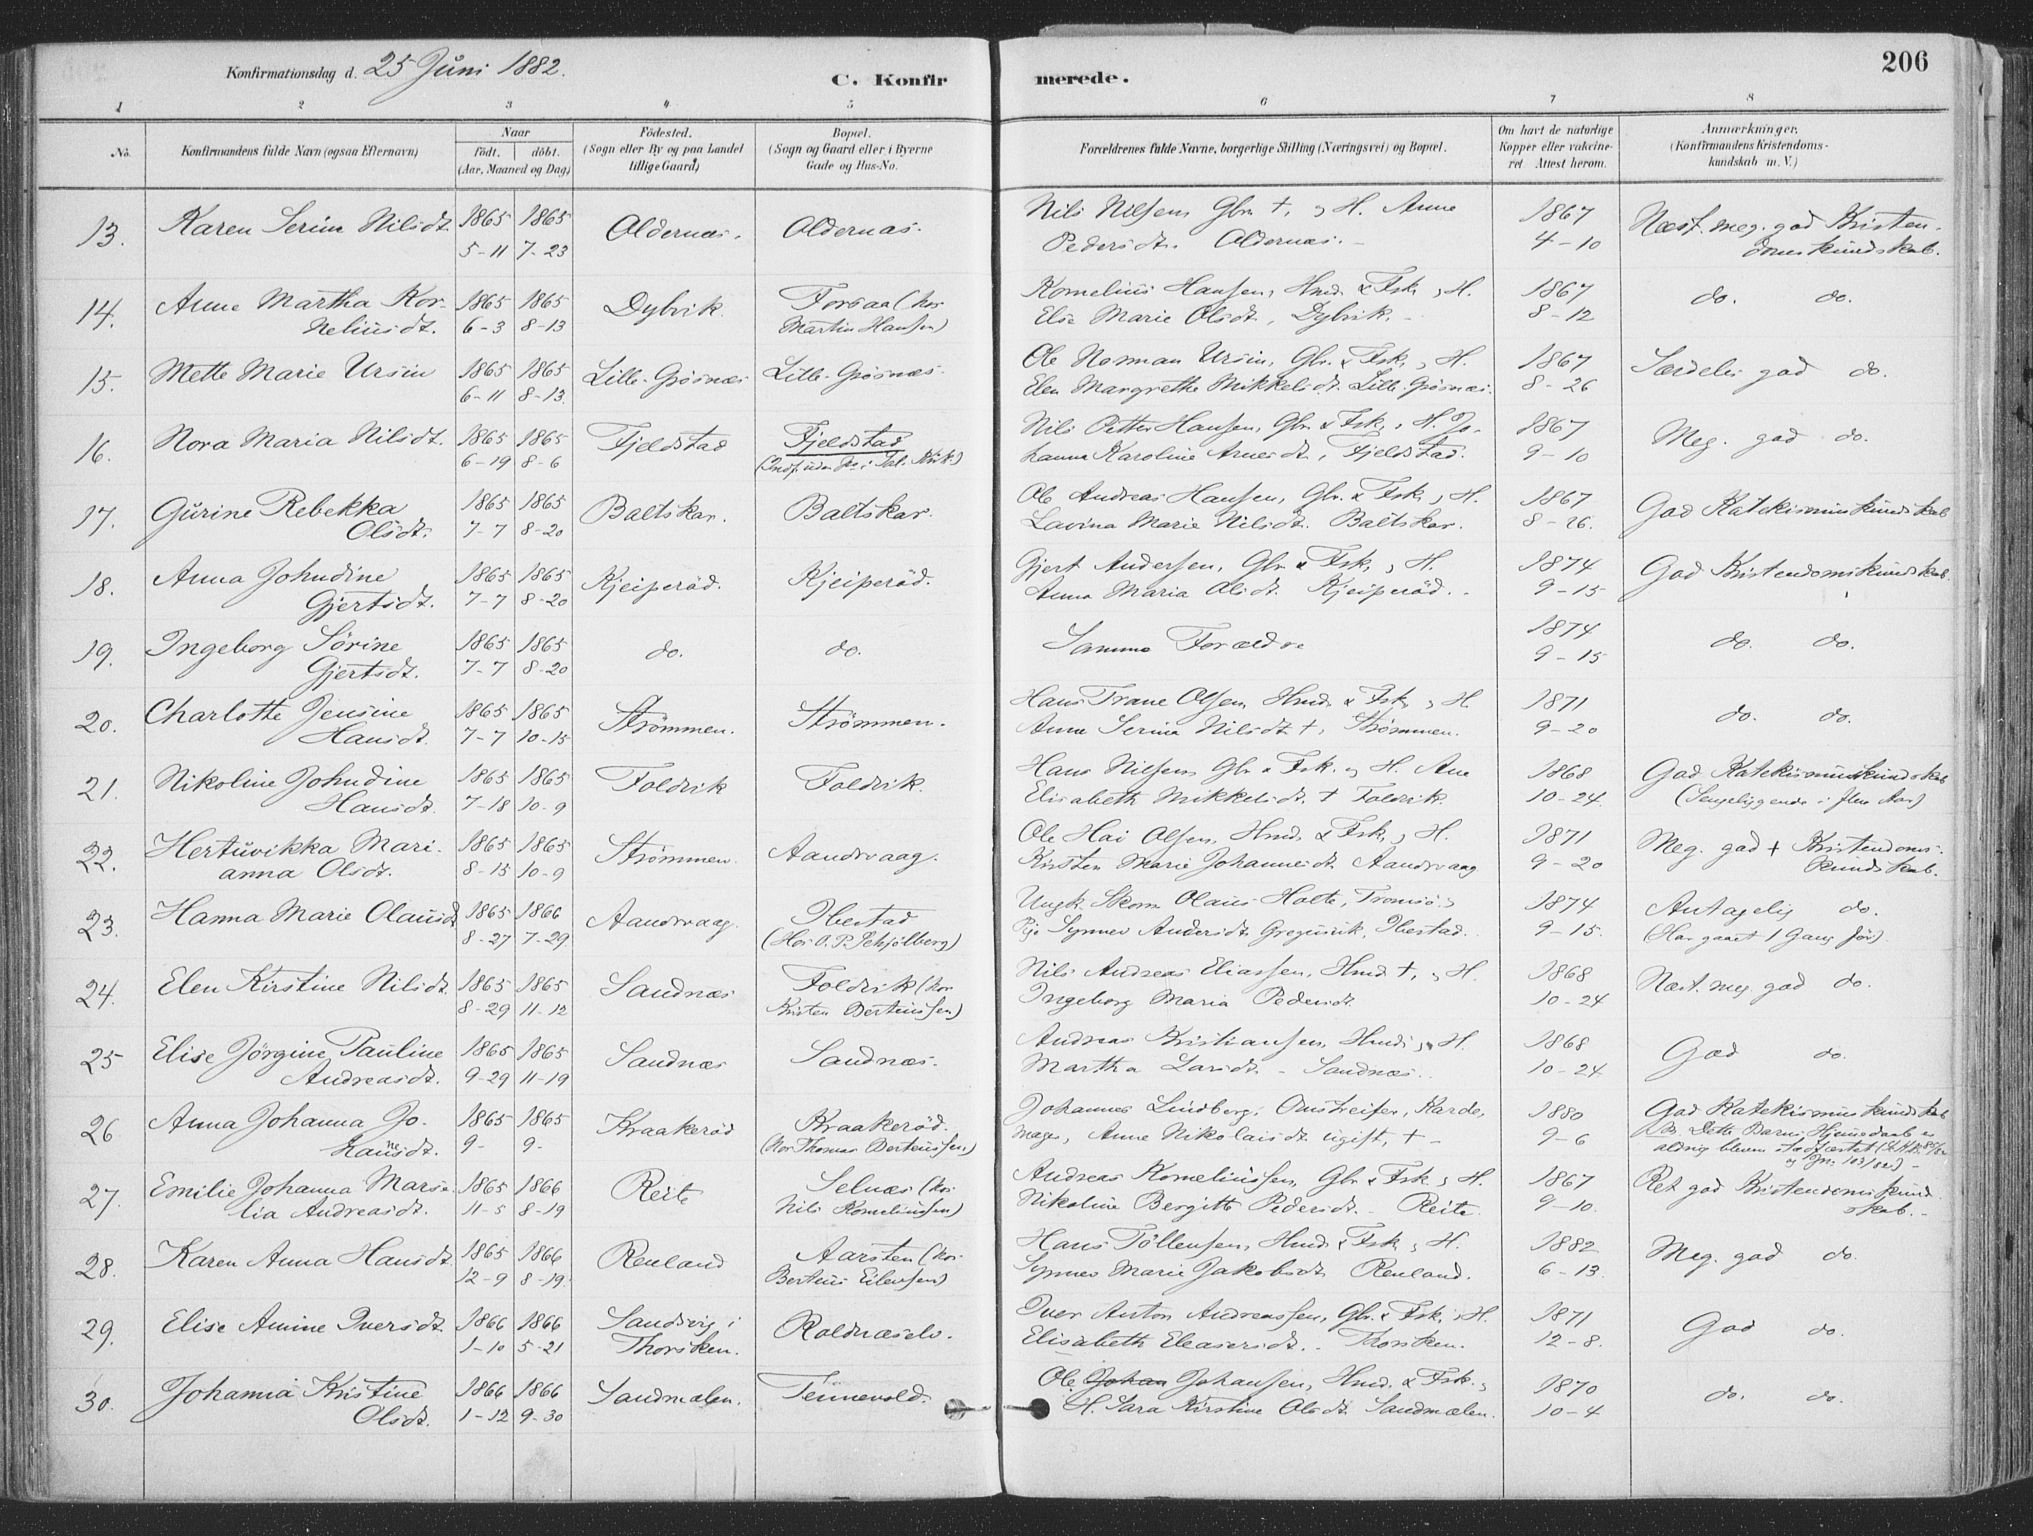 Konfirmationsdag d. 25 Juni 1882.
C. Konfir
merede.
206
1 2 3 4 5 6 7 8
No. Konfirmandens fulde Navn (ogsaa Efternavn)
Naar
födt. döbt.
(Aar, Maaned og Dag)
Födested.
(Sogn eller By og paa Landet
tillige Gaard)
Bopæl.
(Sogn og Gaard eller i Byerne
Gade og Hus-No.
Forældrenes fulde Navne, borgerlige Stilling (Næringsvei) og Bopæl.
Om havt de naturlige
Kopper eller vakcine-
ret Attest herom.
Anmærkninger.
(Konfirmandens Kristendoms-
kundskab m. V.)
13. Karen Serine Nilsdt. 1865 1865 Aldernæs. Aldernæs. Nils Nilsen, Gbr. +, og H. Anne 1867 Næst. meg. god Kristen-
5-11 7-23 Pedersdt. Aldernæs. 4-10 domskundskab.
14. Anne Martha Kor- 1865 1865 Dybvik. Forsaa (hos Kornelius Hansen, Hmd. & Fsk., H. 1867 do. do.
neliusdt. 6-3 8-13 Martin Hansen) Else Marie Olsdt., Dybvik. 8-12
15. Mette Marie Ursin 1865 1865 Lille-Grösnæs Lille-Grösnæs. Ole Norman Ursin, Gbr. & Fsk., H. 1867 Særdeles god do.
6-11 8-13. Elen Margrethe Mikkelsdt. Lille-Grösnæs. 8-26
16. Nora Maria Nilsdt. 1865 1865 Fjeldstad Fjeldstad Nils Petter Hansen, Gbr. & Fsk., H. Jo- 1867 Meg. god do.
6-19 8-6 hanna Karoline Arnesdt., Fjeldstad. 9-10
17. Gurine Rebekka 1865 1865 Baltskar. Baltskar. Ole Andreas Hansen, Gbr. & Fsk., H. 1867 God Katekismuskundskab
Olsdt. 7-7 8-20 Lavina Marie Nilsdt. Baltskar. 8-26.
18. Anna Johndine 1865 1865 Kjeiperöd. Kjeiperöd. Gjert Andersen, Gbr. & Fsk., H. 1874 God Kristendomskundskab.
Gjertsdt. 7-7 8-20 Anna Maria Olsdt. Kjeiperöd. 9-15
19. Ingeborg Sörine 1865 1865 do. do. Samme Forældre 1874 do. do.
Gjertsdt. 7-7 8-20 9-15
20. Charlotte Jensine 1865 1865 Strömmen. Strömmen. Hans Trane Olsen, Hmd. & Fsk., H. 1871 do. do.
Hansdt. 7-7 10-15 Anna Serina Nilsdt. +, Strömmen. 9-20
21. Nikoline Johndine 1865 1865 Foldvik Foldvik. Hans Nilsen, Gbr. & Fsk. og H. Ane 1868 God Katekismuskundskab
Hansdt. 7-18 10-9 Elisabeth Mikkelsdt. + Foldvik. 10-24. (Sengeliggende i flere Aar)
22. Hertuvikka Mari- 1865 1865 Strömmen. Aandvaag. Ole Hai Olsen, Hmd. & Fsk., H. 1871 Meg. god + Kristendoms-
anna Olsdt. 8-15 10-9 Kirsten Marie Johannesdt. Aandvaag 9-20 kundskab.
23. Hanna Marie Olausdt 1865 1866 Aandvaag. Ibestad Ungk. Skom. Olaus Holte, Tromsö. 1874 Antagelig do.
8-27 7-29 (Hos O. P. Schjölberg) Pige Synnev Andersdt. Gregusvik, Ibestad. 9-15. (Har gaaet 1 Gang för)
24. Elen Kirstine Nilsdt. 1865 1865 Sandnæs Foldvik (hos Nils Andreas Eliassen, Hmd. +, H. 1868 Næst. meg. god do.
8-29 11-12 Kristen Berteussen) Ingeborg Maria Pedersdt. 10-24
25 Elise Jörgine Pauline 1865 1865 Sandnæs Sandnæs. Andreas Kristiansen, Hmd., H. 1868 God do.
Andreasdt. 9-29 11-19 Martha Larsdt. - Sandnæs. 10-24
26 Anna Johanna Jo- 1865 1865 Kraakeröd Kraakeröd. Johannes Lindberg, Omstreifer, Karde- 1880 God Katekismuskundskab
hannesdt. 9- 9- (Hos Thomas Berteussen) mager, Anne Nikolaisdt. ugift, + 9-6 NB. Dette Barns Hjemmedaab er
aldrig bleven stadfæstet
27. Emilie Johanna Marse- 1865 1866 Reite Selnæs (hos Andreas Korneliussen, Gbr. & Fsk., H. 1867 Ret god Kristendomskund-
lia Andreasdt. 11-5 8-19 Nils Korneliussen) Nikoline Bergitte Pedersdt. - Reite. 9-10. skab.
28. Karen Anna Hansdt. 1865 1866 Renland Aarsten (hos Hans Töllevsen, Hmd. & Fsk., H. 1882 Meg. god do.
12-9 8-19. Berteus Eilevsen) Synnev Marie Jakobsdt. Renland. 6-13.
29. Elise Amine Iversdt. 1866 1866 Sandvig i Roldnæselv. Iver Anton Andreassen, Gbr. & Fsk., H. 1871 God do.
1-10 5-21 Thorsken. Elisabeth Eleasersdt. Thorsken. 12-8.
30. Johanna Kristine 1866 1866 Sandmælen. Tennevold. Ole Johan Johansen, Hmd. & Fsk., 1870 do. do.
Olsdt. 1-12 9-30 H. Sara Kirstine Olsdt. Sandmælen. 10-4